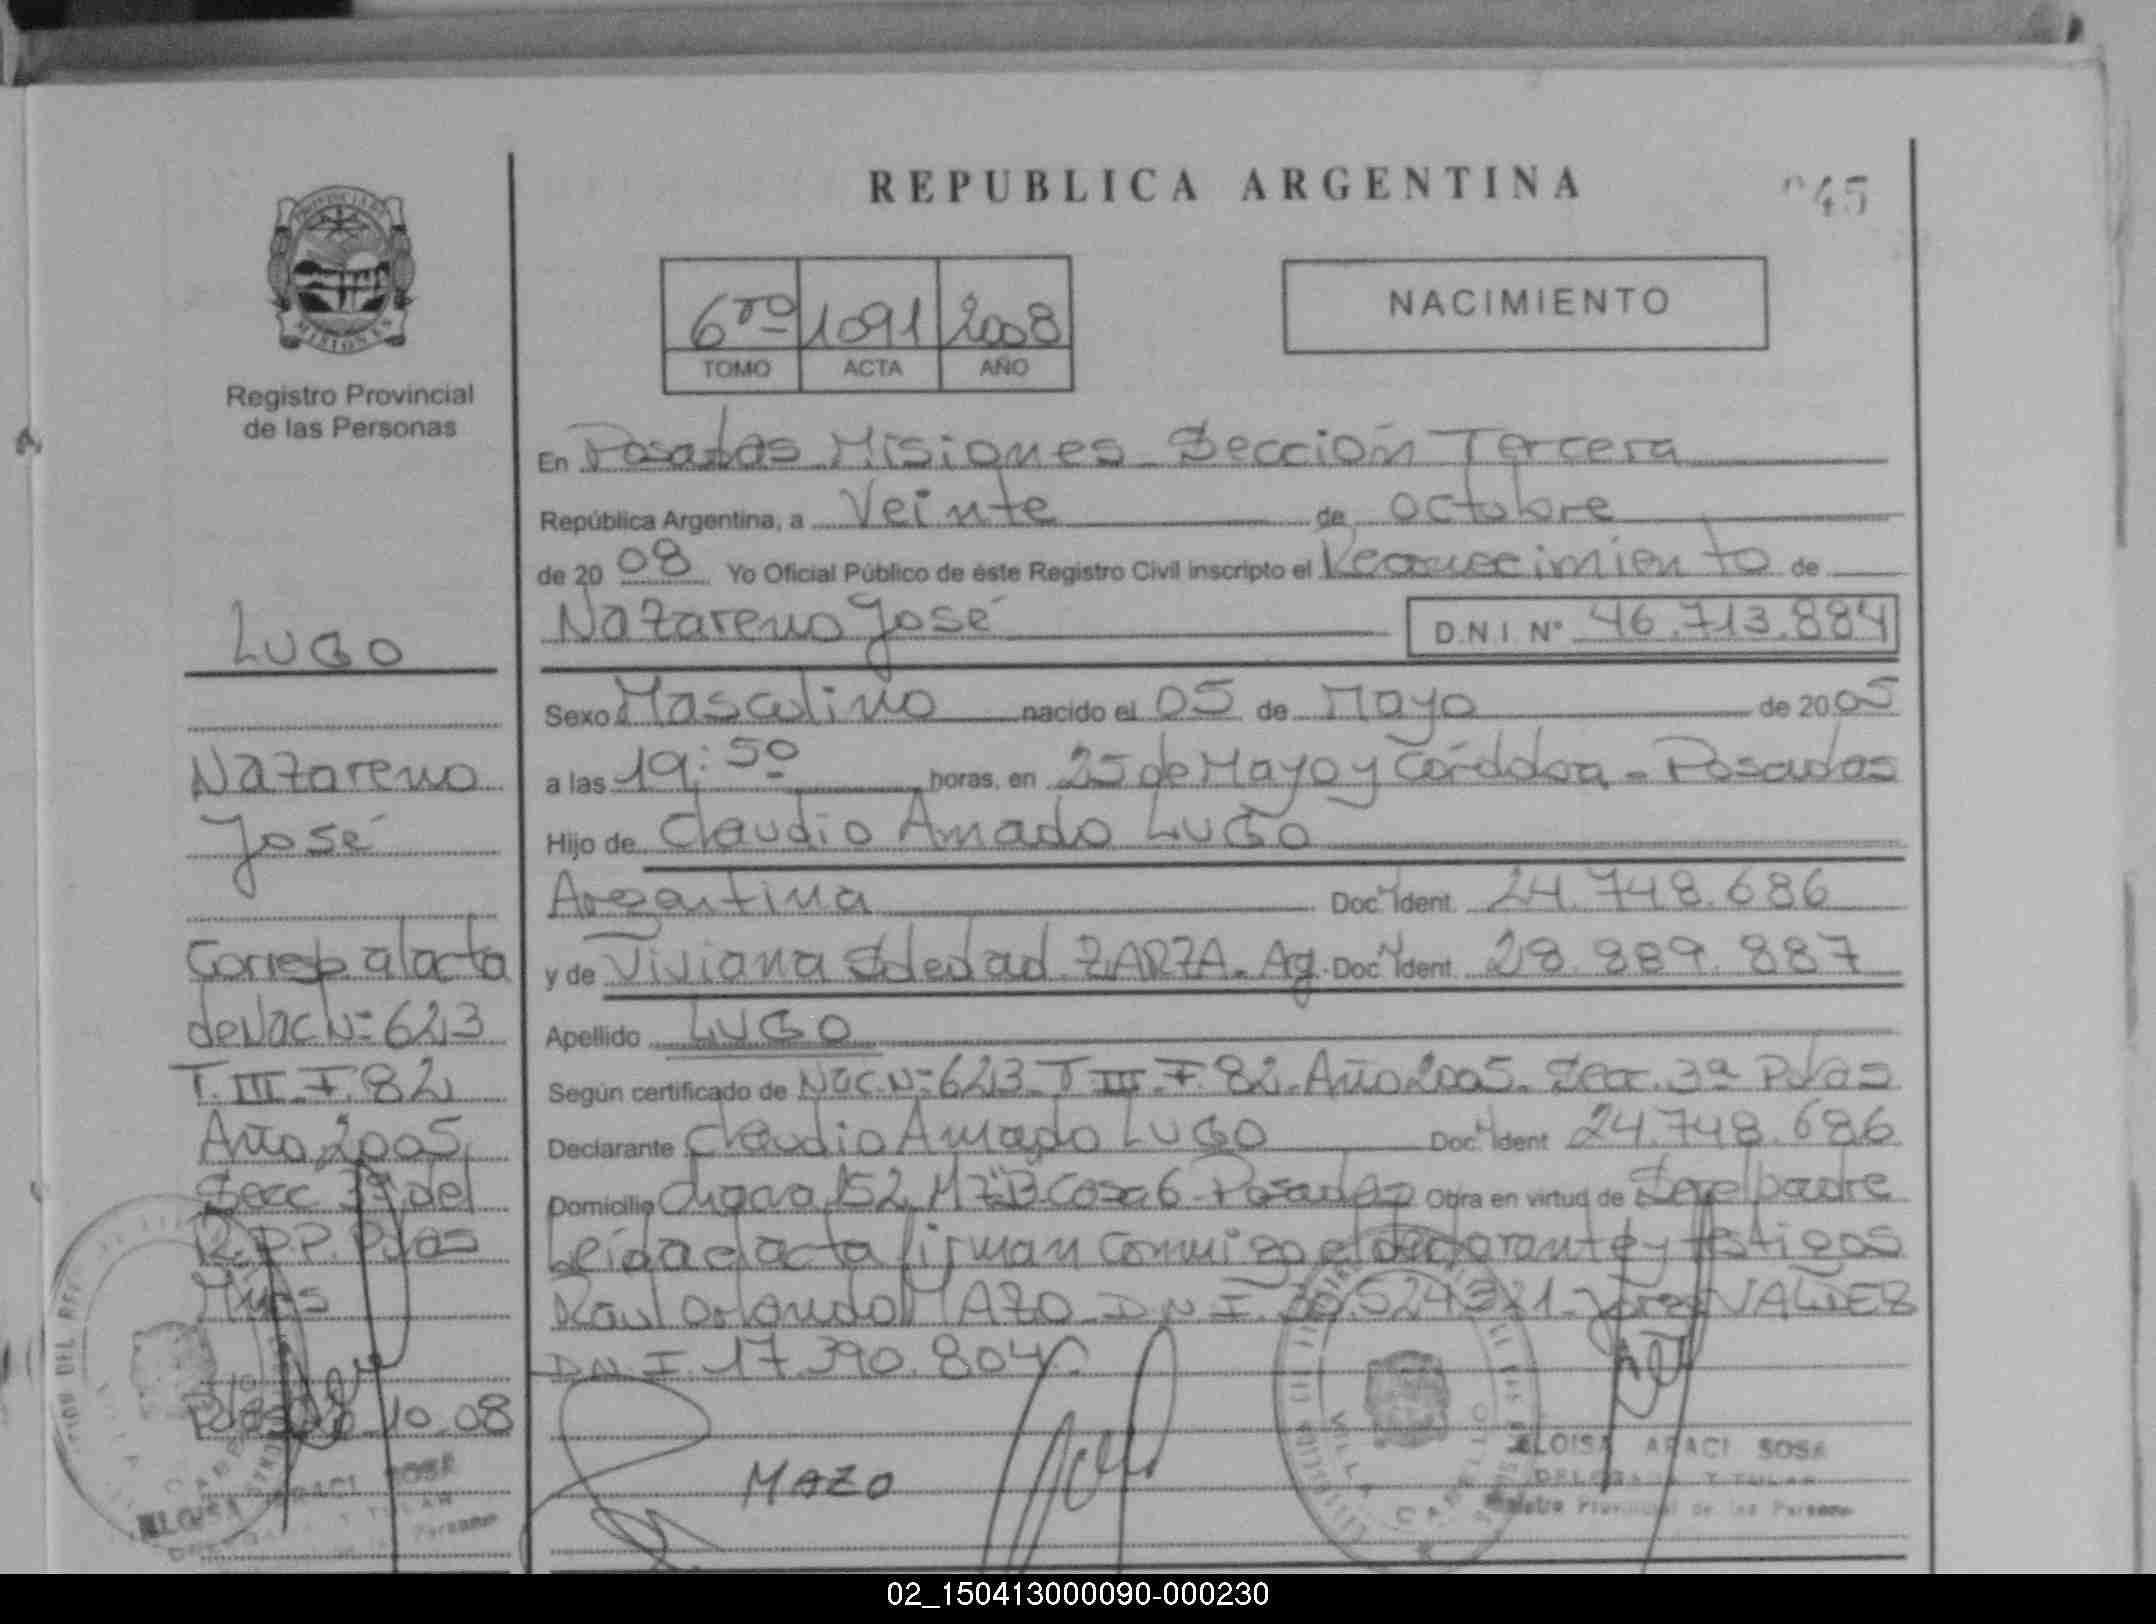 REPUBLICA ARGENTINA
45
PROVINCIA DE
MISIONES
Registro Provincial
de las Personas
6to 1091 2008
TOMO ACTA AÑO
NACIMIENTO
En Posadas Misiones Sección Tercera
República Argentina, a Veinte de octubre
de 20 08 Yo Oficial Público de éste Registro Civil inscripto el Reconocimiento de
Nazareno José
D.N.I. Nº 46.713.884
Sexo Masculino nacido el 05 de Mayo de 20 05
a las 19:50 horas, en 25 de Mayo y Córdoba - Posadas
Hijo de Claudio Amado LUGO
Argentina Doc. Ident. 24.748.686
y de Viviana Soledad ZARZA - Ag. Doc. Ident. 28.889.887
Apellido LUGO
Según certificado de Nac. Nº 623 T III F 82 Año 2005 - Secc. 3ª Pdas
Declarante Claudio Amado LUGO Doc. Ident 24.748.686
Domicilio Chacra 152 Mz "B" Casa 6 Posadas Obra en virtud de Ser el padre
Leída el acta firman conmigo el declarante y testigos
Raul Orlando MAZO D.N.I. 20.524.321 - VALDEZ
D.N.I. 17.390.804
MAZO
ELOISA ARACI SOSA
DELEGADA TITULAR
Registro Provincial de las Personas
VILLA CABELLO
LUGO
Nazareno
José
Corresp. al acta
de Nac Nº 623
T. III F. 82
Año 2005
Secc 3ª del
R.P.P. Pdas
Mnes
10-08
ELOISA ARACI SOSA
02_150413000090-000230